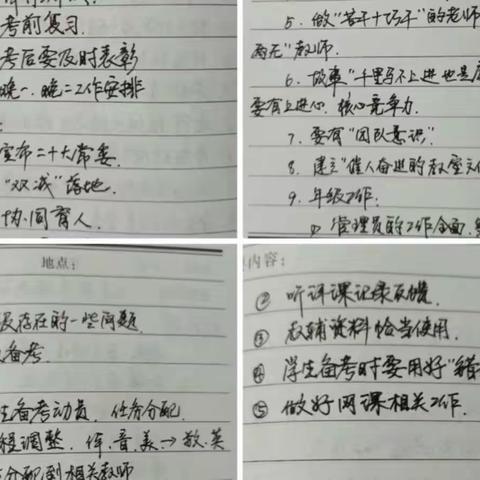 考前复习.
考后要及时表彰
晚一、晚二工作安排
宣布二十大常委.
"双减"落地.
协同育人.
5. 做"苦干十巧干"的老师
两无"教师.
6. 做事"千里马不上进也是
要有上进心. 核心竞争力.
7. 要有"团队意识".
8. 建立"催人奋进的教室文
9. 年级工作.
① 管理员的工作全面.
地点:
存在的一些问题.
备考.
生备考动员. 任务分配.
程调整. 体、音、美→数、英
分配到相关教师
内容:
② 听评课记录反馈.
③ 教辅资料恰当使用.
④ 学生备考时要用好"错
⑤ 做好网课相关工作.